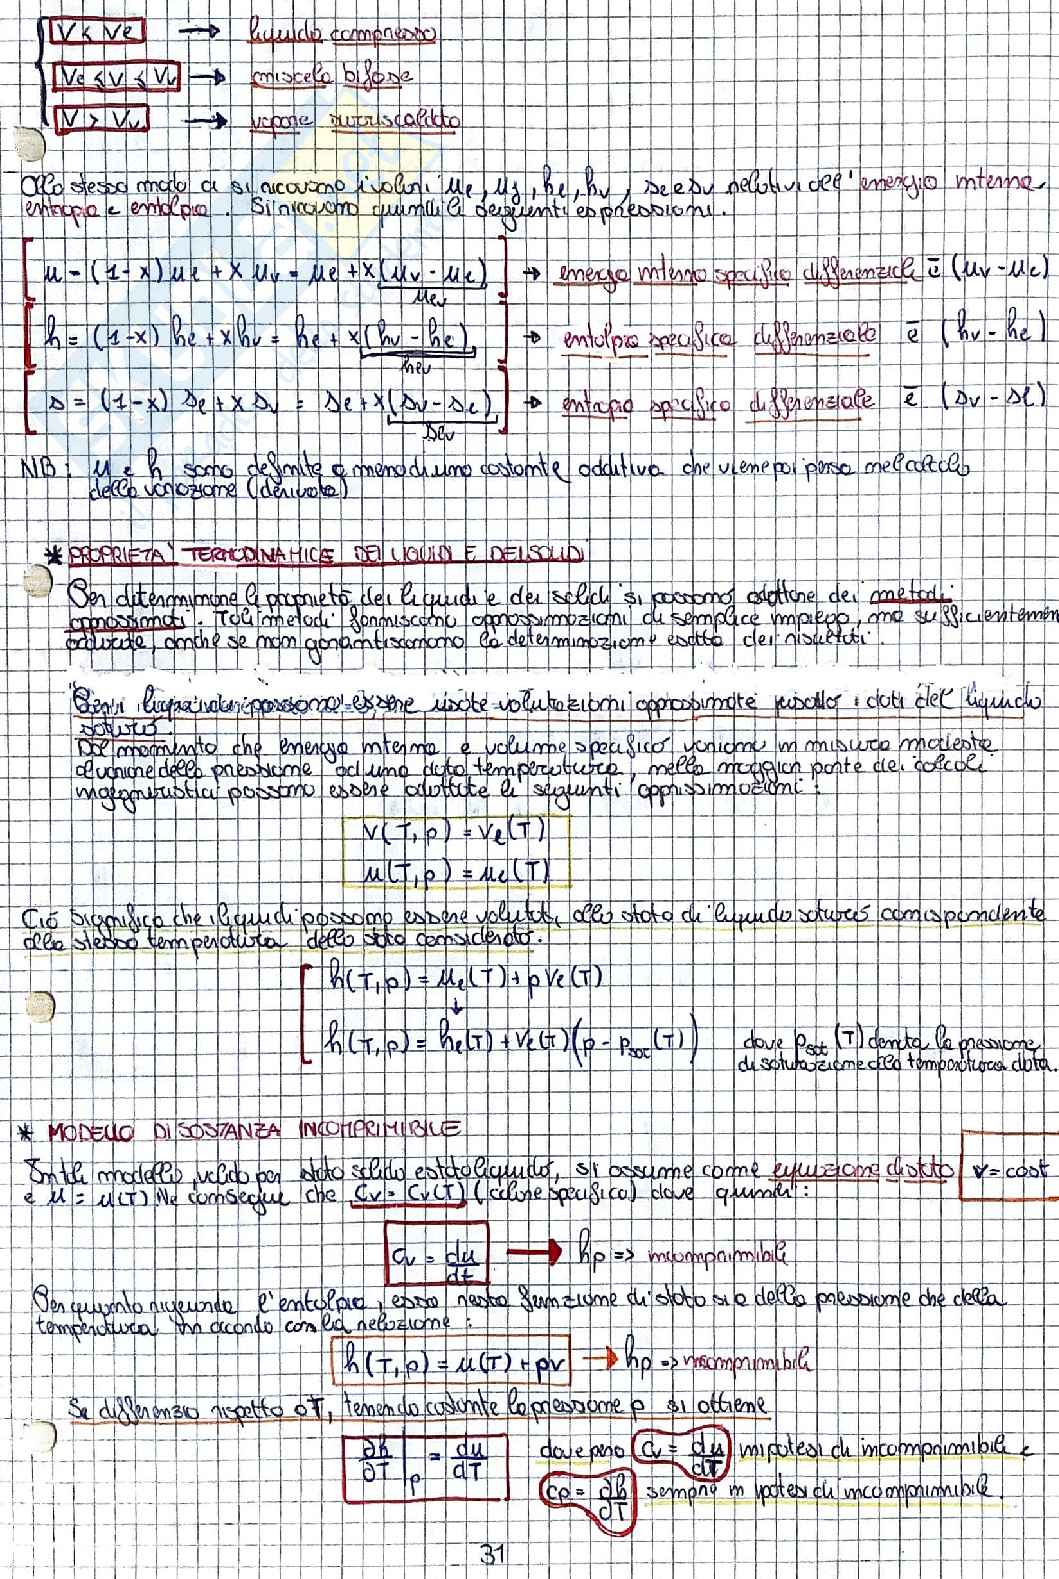 v < ve → liquido compresso
ve ≤ v ≤ vv → miscela bifase
v > vv → vapore surriscaldato
Allo stesso modo ci si ricavano i valori ue, uv, he, hv, se e sv relativi all'energia interna,
entropia e entalpia. Si ricavano quindi le seguenti espressioni.
u = (1-x) ue + x uv = ue + x(uv - ue) → energia interna specifica differenziale è (uv - ue)
uev
h = (1-x) he + x hv = he + x(hv - he) → entalpia specifica differenziale è (hv - he)
hev
s = (1-x) se + x sv = se + x(sv - se) → entropia specifica differenziale è (sv - se)
sev
NB: u e h sono definite a meno di una costante additiva che viene poi persa nel calcolo
della variazione (derivata)
* PROPRIETA' TERMODINAMICE DEI LIQUIDI E DEI SOLIDI
Per determinare le proprietà dei liquidi e dei solidi si possono adottare dei metodi
approssimati. Tali metodi forniscono approssimazioni di semplice impiego, ma sufficientemen
accurate, anche se non garantiscono la determinazione esatta dei risultati.
Per i liquidi possono essere usate valutazioni approssimate usando i dati del liquido
saturo.
Dal momento che energia interna e volume specifico variano in misura modesta
al variare della pressione ad una data temperatura, nella maggior parte dei calcoli
ingegneristici possono essere adottate le seguenti approssimazioni:
v(T,p) = ve(T)
u(T,p) = ue(T)
Ciò significa che i liquidi possono essere valutati allo stato di liquido saturo corrispondente
alla stessa temperatura dello stato considerato.
h(T,p) = ue(T) + p ve(T)
↓
h(T,p) = he(T) + ve(T)(p - psat(T)) dove psat(T) denota la pressione
di saturazione alla temperatura data.
* MODELLO DI SOSTANZA INCOMPRIMIBILE
In tale modello, valido per stato solido e stato liquido, si assume come equazione di stato v = cost
e u = u(T) Ne consegue che Cv = Cv(T) (calore specifico) dove quindi:
Cv = du/dt → hp => incomprimibile
Per quanto riguarda l'entalpia, essa resta funzione di stato sia della pressione che della
temperatura in accordo con la relazione:
h(T,p) = u(T) + pv → hp => incomprimibile
Se differenzio rispetto a T, tenendo costante la pressione p si ottiene
∂h/∂T |p = du/dT dove però Cv = du/dT in ipotesi di incomprimibile e
cp = ∂h/∂T sempre in ipotesi di incomprimibile.
31